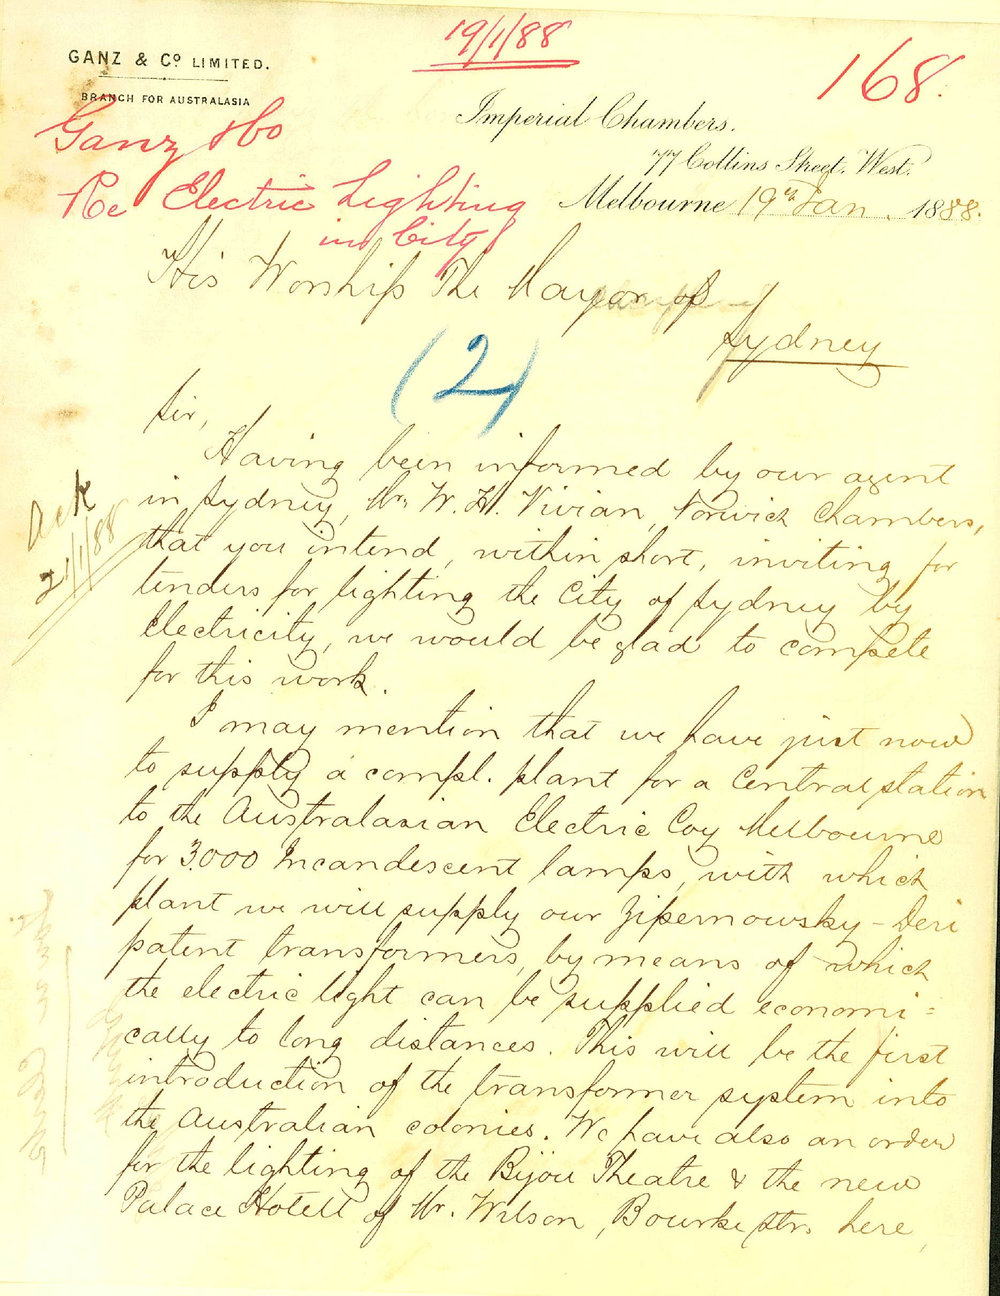 19/1/88
168.
GANZ & Co LIMITED.
BRANCH FOR AUSTRALASIA
Imperial Chambers.
77 Collins Street. West.
Melbourne 19th Jan. 1888.
Ganz & Co
Re Electric Lighting
in City
His Worship The Mayor of
Sydney
(2)
Sir,
Having been informed by our agent
in Sydney, Mr. W. H. Vivian, Norwich Chambers,
that you intend, within short, inviting for
tenders for lighting the City of Sydney by
Electricity, we would be glad to compete
for this work.
Ack
21/1/88
I may mention that we have just now
to supply a compl. plant for a Central station
to the Australasian Electric Coy Melbourne
for 3000 Incandescent lamps, with which
plant we will supply our Zipernowsky-Deri
patent transformers, by means of which
the electric light can be supplied economi=
cally to long distances. This will be the first
introduction of the transformer system into
the Australian colonies. We have also an order
for the lighting of the Bijou Theatre & the new
Palace Hotell of Mr. Wilson, Bourke str. here,